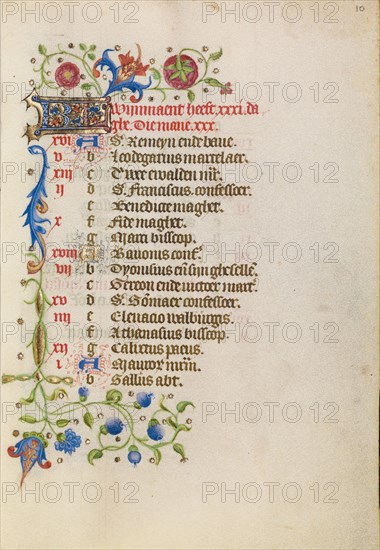 10
Wijnmaent heeft .xxxi. da
ghe. Die mane .xxx.
xvi A S. Remeyn ende bave.
v b Leodegarius martelaer.
xiij c Twee ewalden mr̄.
ij d S. Franciscus. confesseer.
e Benedicte maghet.
x f Fide maghet.
g Marx bisscop.
xviij A Bavonis conf.
vij b Dyonisius eñ sijn gheselle.
c Gereon ende victoer mart.
xv d S. Gōmaer confesseer.
iiij e Eleuacio walburgis.
f Athanasius bisscop.
xij g Calixtus paeus.
i A Mauwr mr̄m.
b Gallus abt.
PHOTO 12